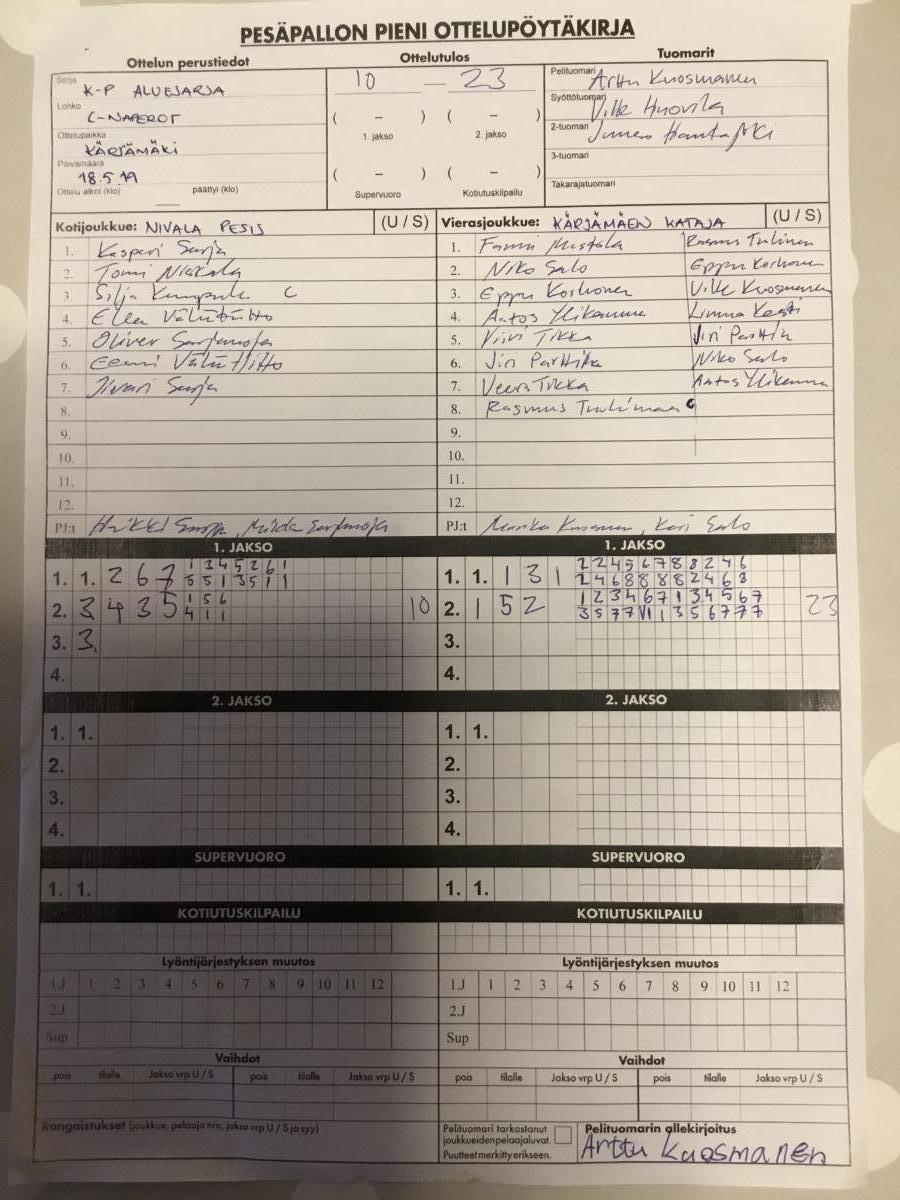 PESÄPALLON PIENI OTTELUPÖYTÄKIRJA
Ottelun perustiedot
Ottelutulos
Tuomarit
Sarja
K-P ALUEJARJA
Lohko
C-NAPEROT
Ottelupaikka
KÄRJÄMÄKI
Päivämäärä
18.5.19
Ottelu alkoi (klo) päättyi (klo)
10 — 23
( – ) ( – )
1. jakso 2. jakso
( – ) ( – )
Supervuoro Kotiutuskilpailu
Pelituomari Arttu Kuosmanen
Syöttötuomari Ville Huovila
2-tuomari
3-tuomari
Takarajatuomari
Kotijoukkue: NIVALA PESIS (U / S)
1. Kasperi Sarja
2. Tomi
3. Silja C
4. Ella
5. Oliver
6. Eemi
7. Iivari Sarja
8.
9.
10.
11.
12.
PJ:t
Vierasjoukkue: KÄRJÄMÄEN KATAJA (U / S)
1.
2. Niko Salo Eppu Korhonen
3. Eppu Korhonen Ville Kuosmanen
4. Aatos Ylikauma
5. Viivi Tikka
6. Niko Salo
7. Veera Tikka Aatos Ylikauma
8. Rasmus
9.
10.
11.
12.
PJ:t Salo
1. JAKSO
1. 1. 2 6 7 1 3 4 5 2 6 1
5 5 1 3 5 1 1
2. 3 4 3 5 1 5 6 10
4 1 1
3. 3.
4.
1. JAKSO
1. 1. 1 3 1 2 2 4 5 6 7 8 8 2 4 6
2 4 6 8 8 8 8 2 4 6 8
2. 1 5 2 1 2 3 4 6 7 1 3 4 5 6 7 23
3 5 7 7 1 1 3 5 6 7 7 7
3.
4.
2. JAKSO
1. 1.
2.
3.
4.
2. JAKSO
1. 1.
2.
3.
4.
SUPERVUORO
1. 1.
SUPERVUORO
1. 1.
KOTIUTUSKILPAILU
KOTIUTUSKILPAILU
Lyöntijärjestyksen muutos
1.J 1 2 3 4 5 6 7 8 9 10 11 12
2.J
Sup
Lyöntijärjestyksen muutos
1.J 1 2 3 4 5 6 7 8 9 10 11 12
2.J
Sup
Vaihdot
pois tilalle Jakso vrp U / S pois tilalle Jakso vrp U / S
Vaihdot
pois tilalle Jakso vrp U / S pois tilalle Jakso vrp U / S
Rangaistukset (joukkue, pelaaja nro, jakso vrp U / S ja syy)
Pelituomari tarkastanut
joukkueiden pelaajaluvat.
Puutteet merkitty erikseen.
Pelituomarin allekirjoitus
Arttu Kuosmanen